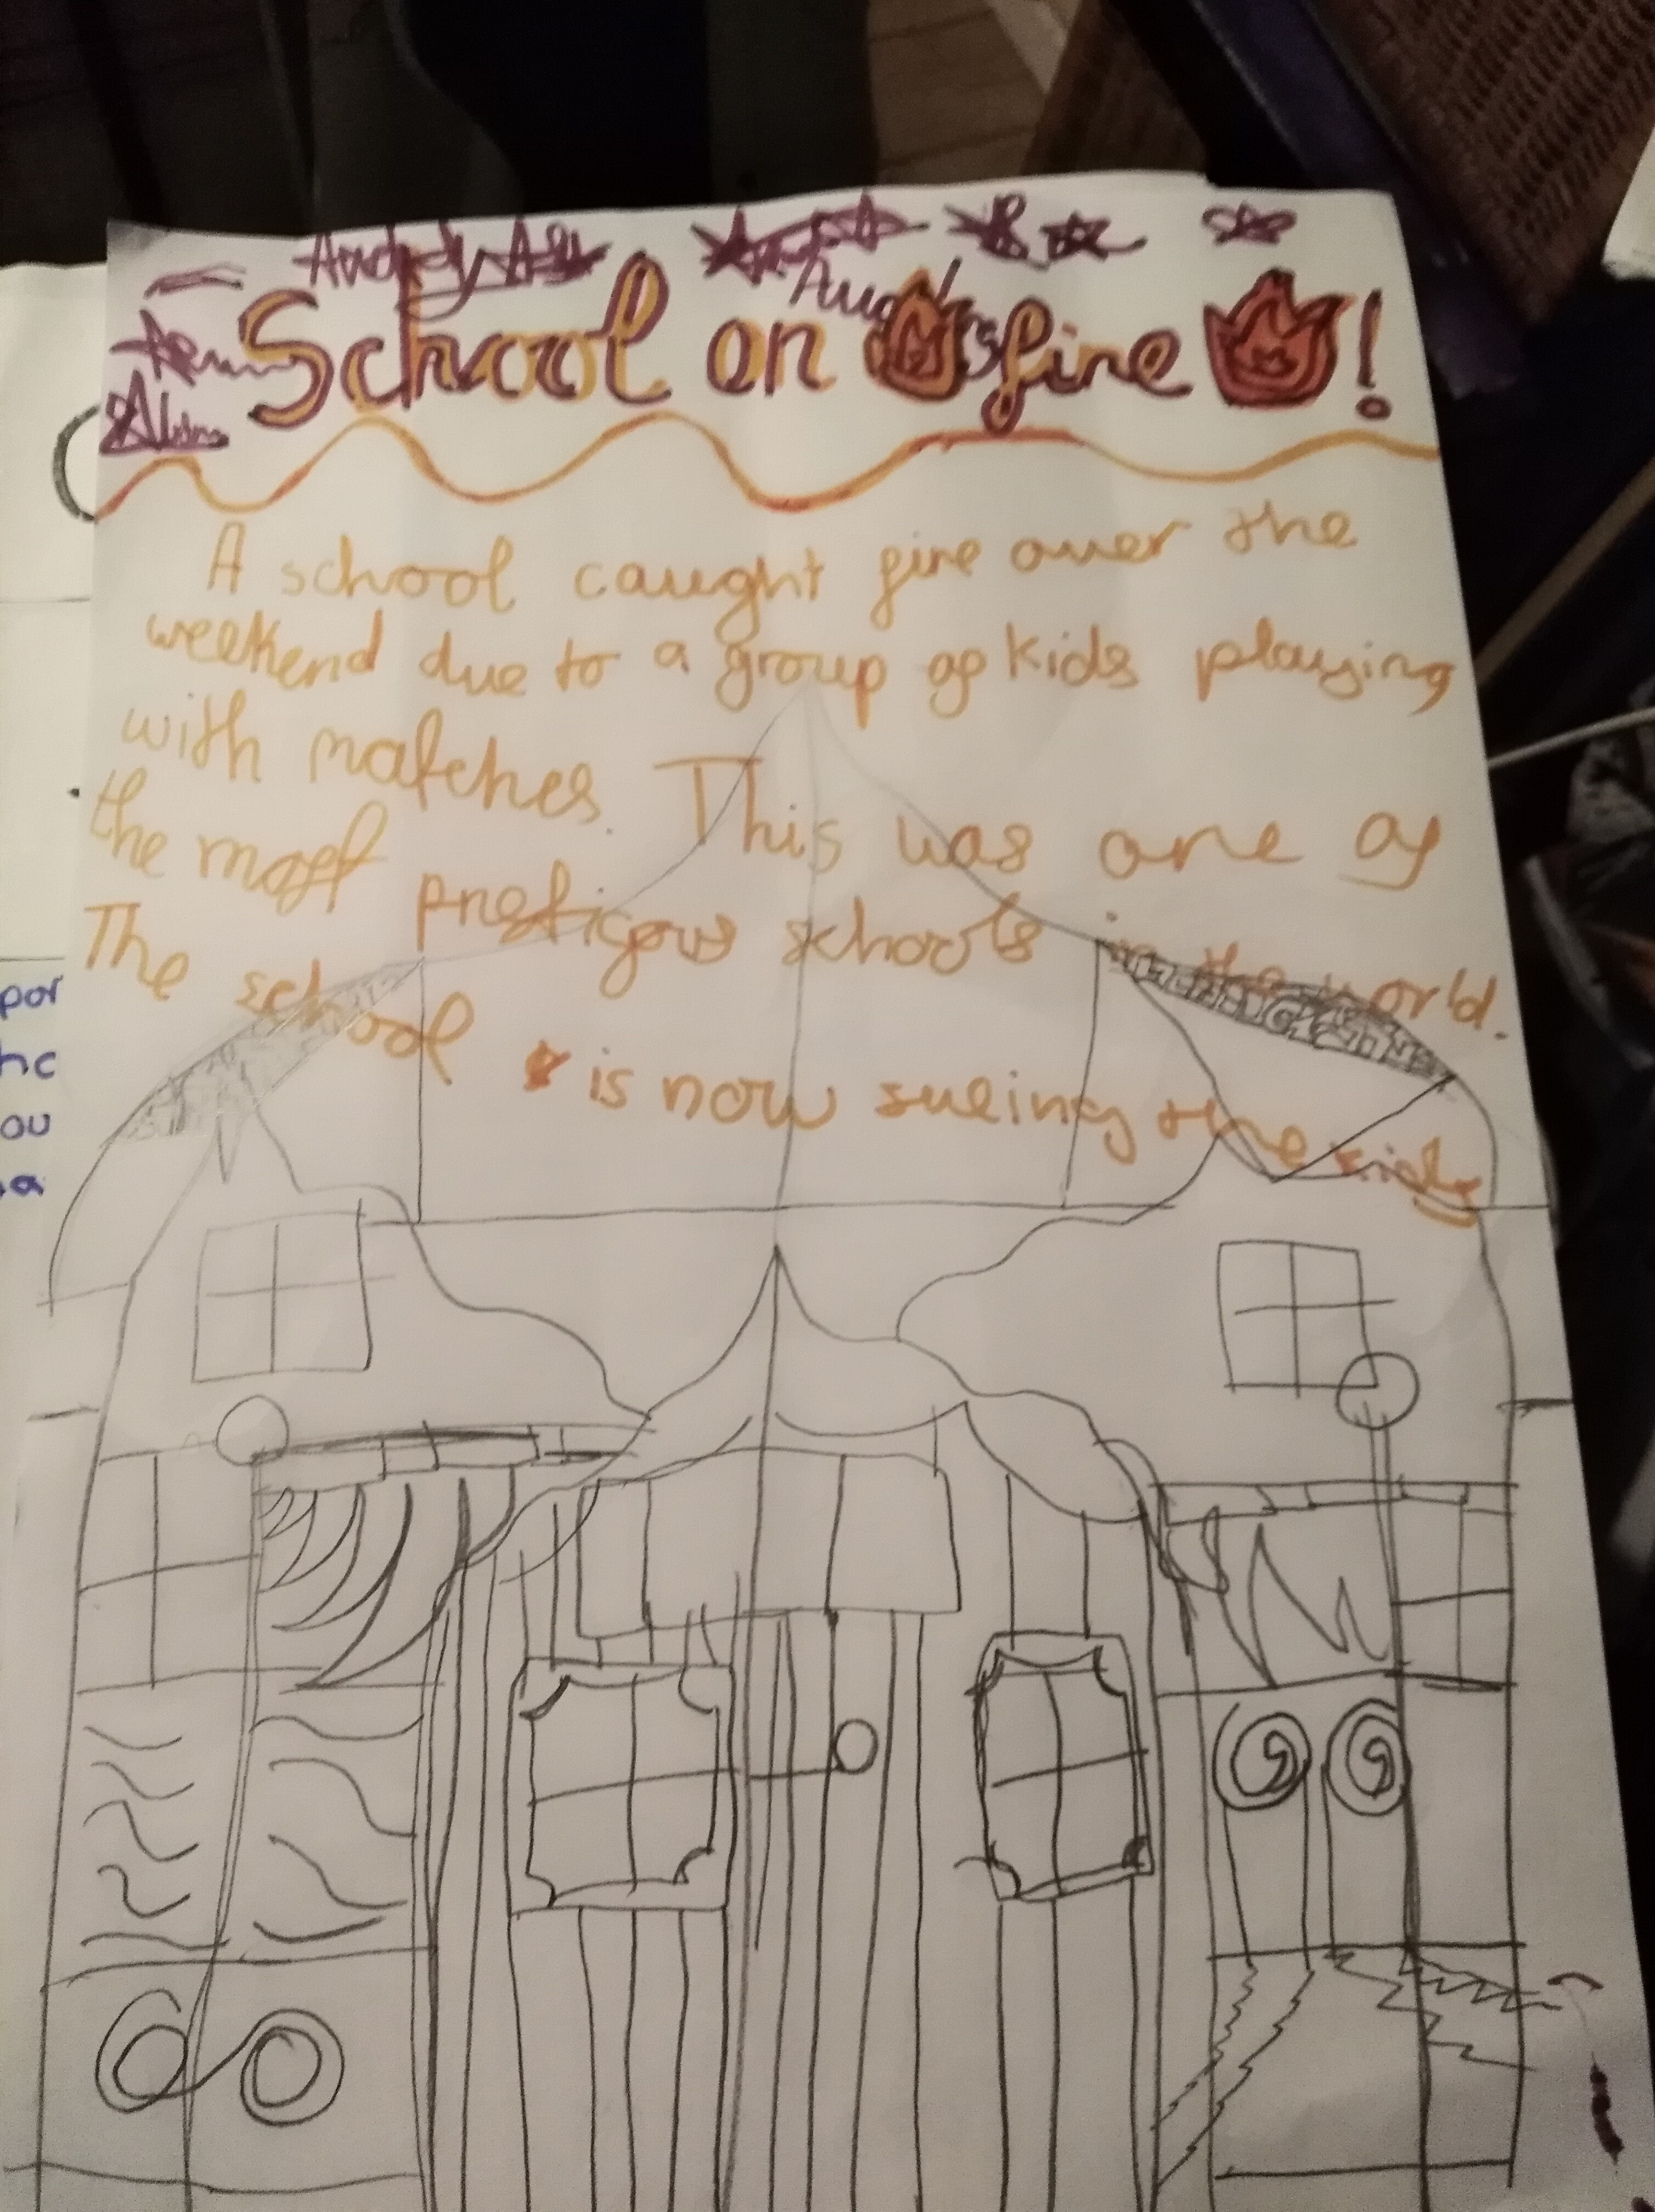 School on fire !
A school caught fire over the
weekend due to a group of kids playing
with matches. This was one of
the most prestigous schools in the world.
The school is now sueing the kids
por
hc
ou
a